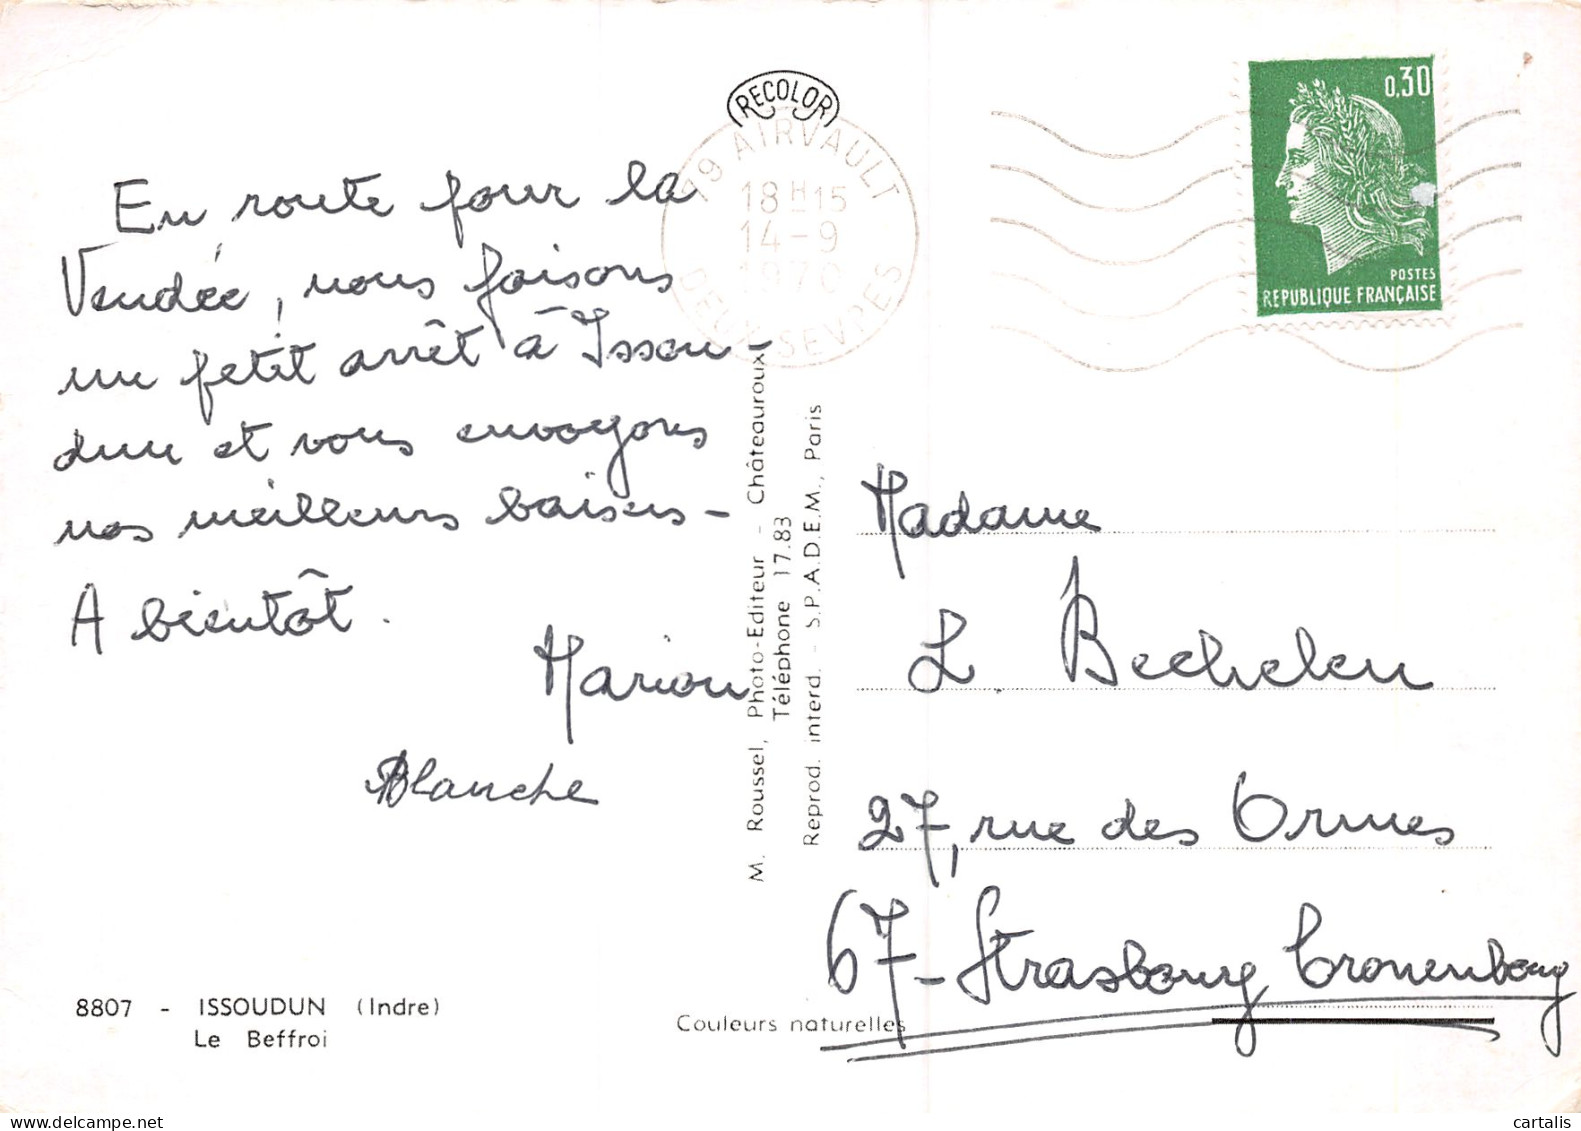 RECOLOR
79 AIRVAULT
18H15
14-9
1970
DEUX-SEVRES
0,30
POSTES
REPUBLIQUE FRANÇAISE
En route pour la
Vendée, nous faisons
un petit arrêt à Issou-
dun et vous envoyons
nos meilleurs baisers -
A bientôt.
Marion
Blanche
M. Roussel, Photo-Editeur - Châteauroux
Téléphone 17.83
Reprod. interd. - S.P.A.D.E.M., Paris
Madame
L Bechelen
27, rue des Ormes
67 - Strasbourg Cronenbourg
8807 - ISSOUDUN (Indre)
Le Beffroi
Couleurs naturelles
cartalis